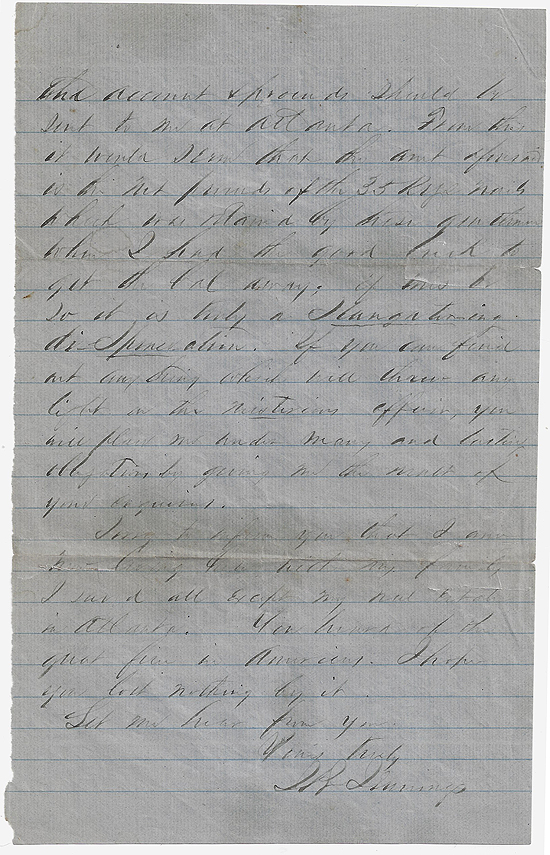 The account & proceeds should be
sent to me at Atlanta. From this
it would seem that the amt
is the net proceeds of the 35 Kegs
which was by these gentlemen
when I had the good luck to
get the bal away; if this be
so it is truly a
dis. If you can find
out anything which will throw any
light on the misterious affair, you
will place me under many and lasting
obligations by giving me the result of
your enquiries.
Sorry to inform you that I am
living with my family
I saved all except my real estate
in Atlanta. You heard of the
great fire in Americus. I hope
you lost nothing by it.
Let me hear from you.
Yours truly
Jennings